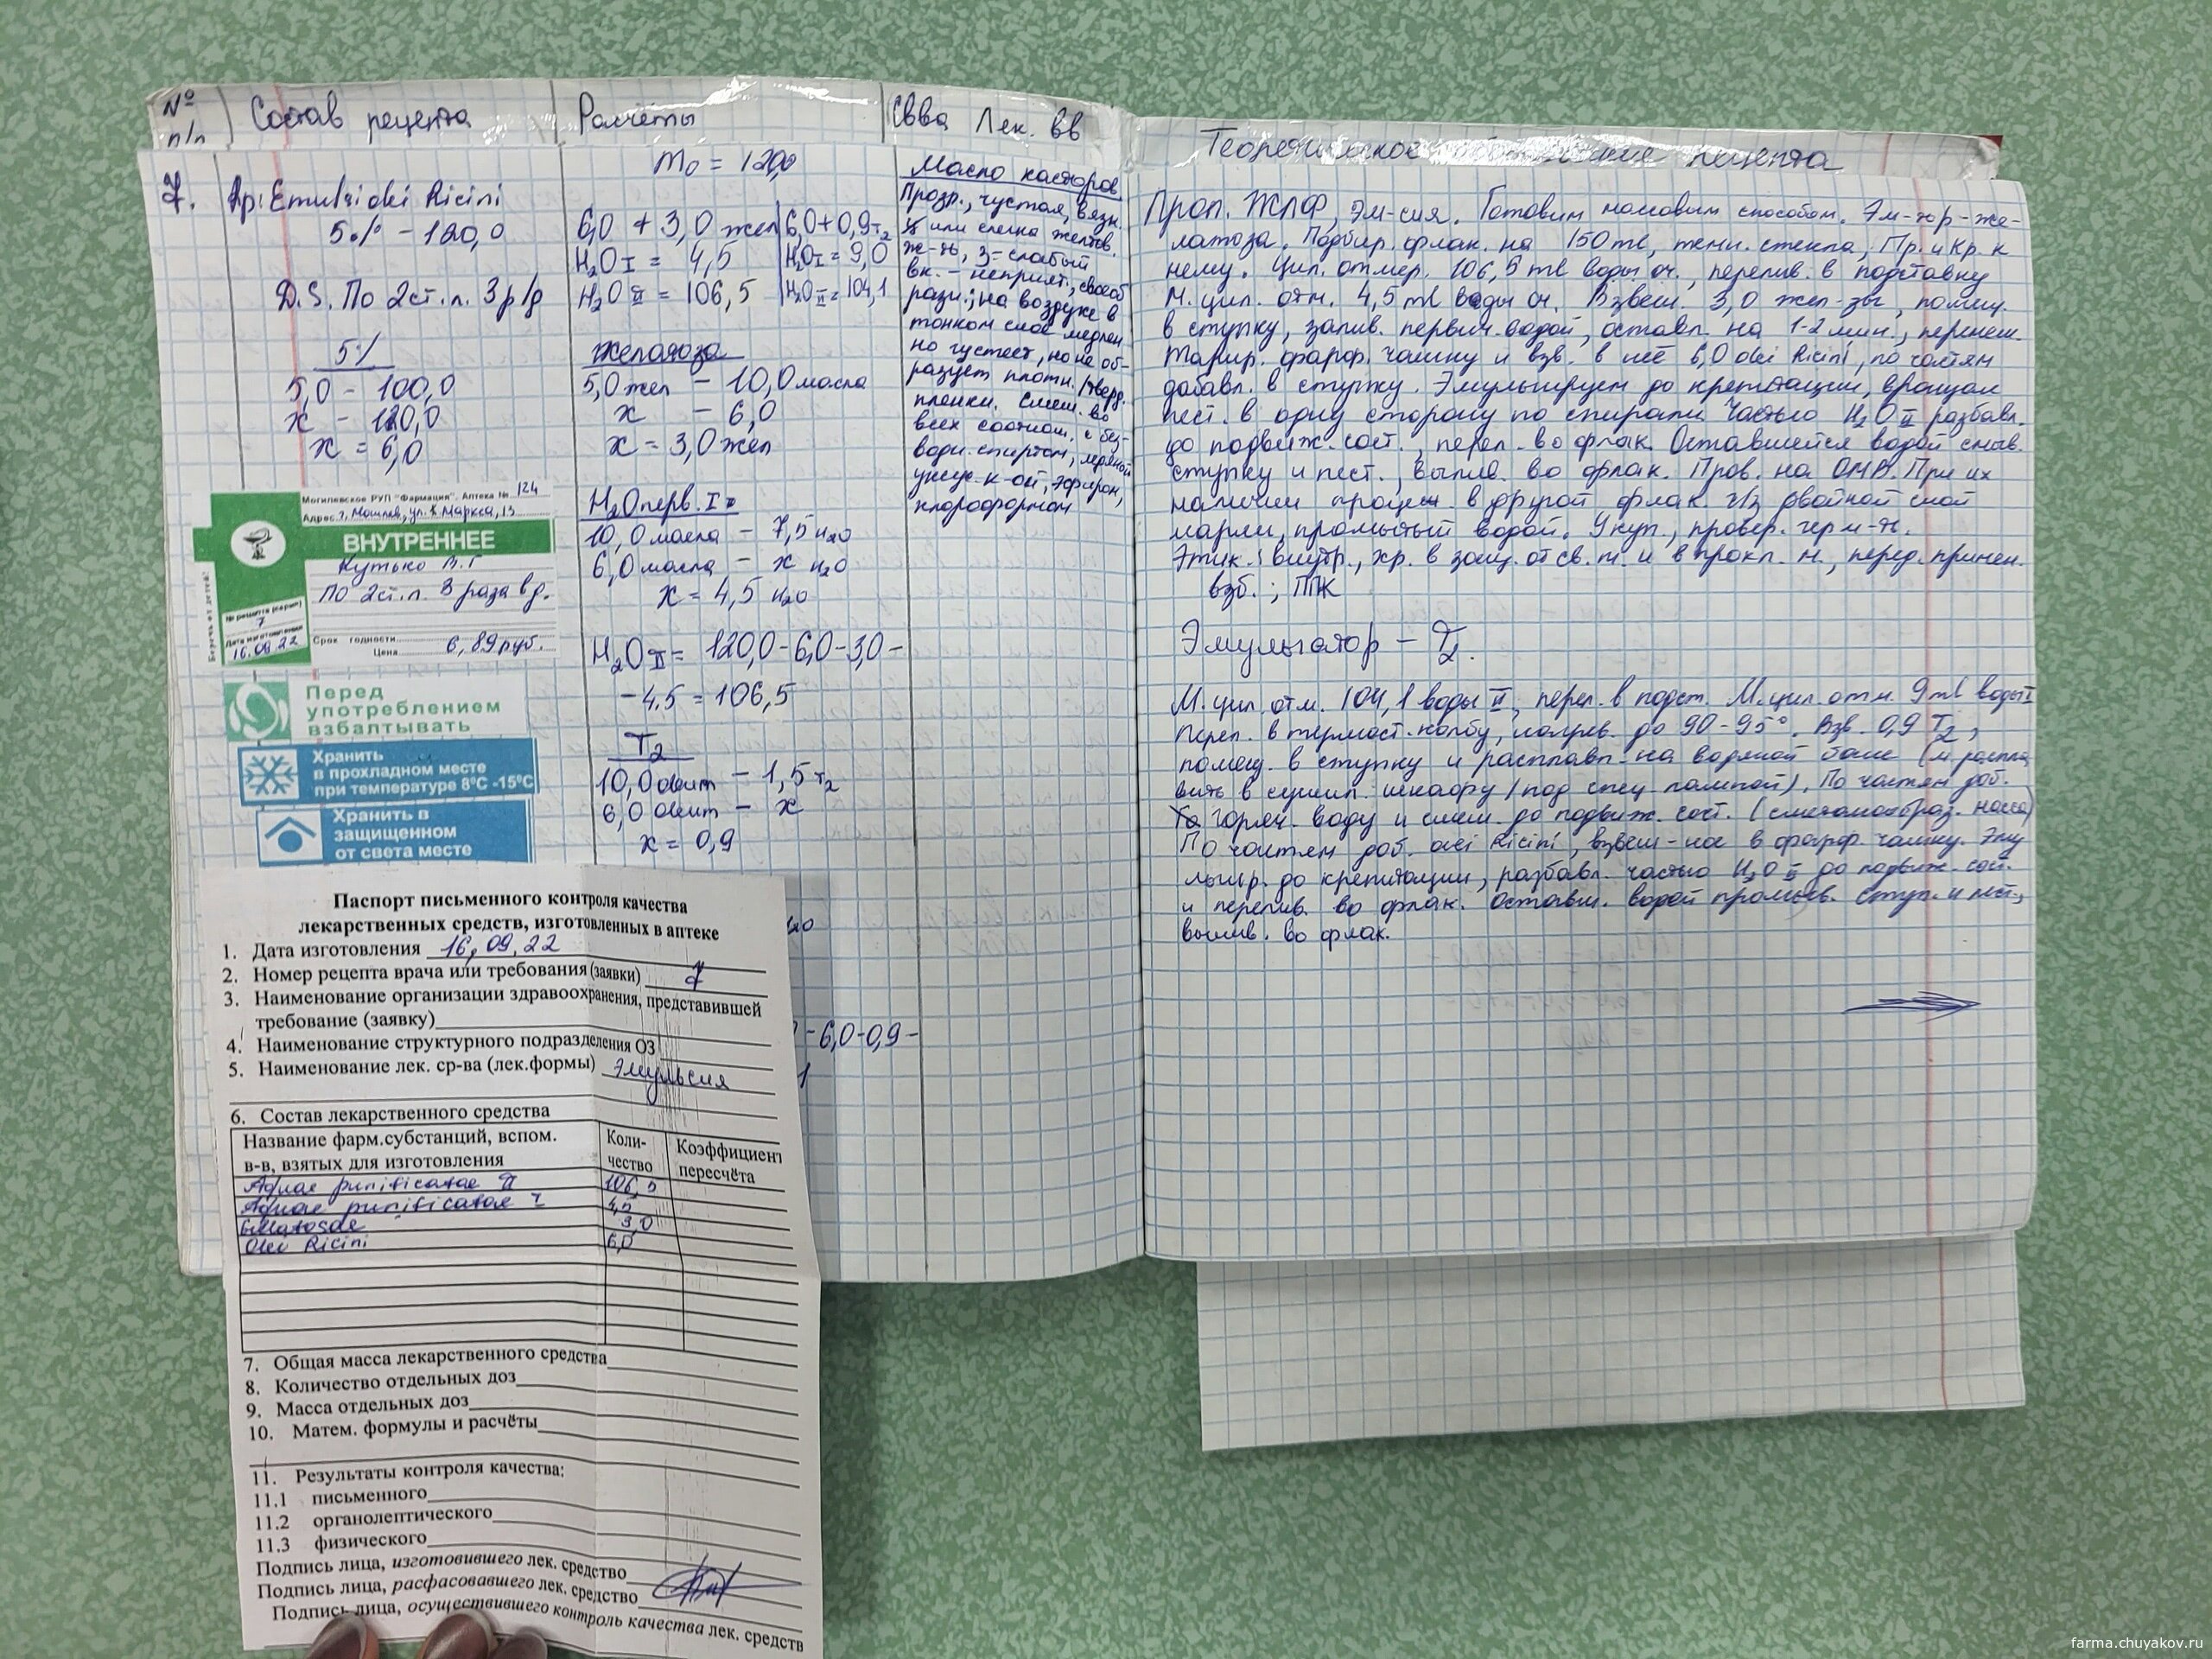 № п/п
Состав рецепта
Расчёты
Св-ва Лек. вв
Теоретическое рецепта
7.
Rp: Emulsi olei Ricini
5% - 120,0
D.S. По 2 ст. л. 3 р/д
5%
5,0 - 100,0
х - 120,0
х = 6,0
Могилевское РУП "Фармация". Аптека № 124
Адрес г. Могилев, ул. К Маркса, 13
ВНУТРЕННЕЕ
Кутько В.Г
По 2 ст.л. 3 раза в д.
№ рецепта (серия)
7
Дата изготовления
16.09 22
Срок годности
Цена 6,89 руб.
Беречь от детей!
Перед
употреблением
взбалтывать
Хранить
в прохладном месте
при температуре 8°С -15°С
Хранить в
защищенном
от света месте
m0 = 120,0
6,0 + 3,0 жел | 6,0 + 0,9 т2
H2O I = 4,5 | H2O I = 9,0
H2O II = 106,5 | H2O II = 104,1
Желатоза
5,0 жел - 10,0 масла
х - 6,0
х = 3,0 жел
H2O перв. I
10,0 масла - 7,5 н2о
6,0 масла - х н2о
х = 4,5 н2о
H2O II = 120,0-6,0-3,0-
-4,5 = 106,5
Т2
10,0 олеит - 1,5 т2
6,0 олеит - х
х = 0,9
н2о
- 6,0-0,9-
1
Масло касторов
Прозр., густая, вязк.
или слегка желтов.
ж-ть, з-слабый
вк. - неприят., своеоб
разн.; на воздухе в
тонком слое медлен
но густеет, но не об-
разует плотн. /тверд.
пленки. Смеш. во
всех соотнош. с без-
водн. спиртом, ледяной
уксус. к-ой, эфиром,
хлороформом
Проп. ЖЛФ, эм-сия. Готовим массовым способом. Эм-ж-р-же-
латоза. Подбир. флак. на 150 ml, темн. стекла, Пр. и Кр. к
нему. Цил. отмер. 106,5 ml воды оч., перелив. в подставку
М. цил. отм. 4,5 ml воды оч. Взвеш. 3,0 жел-зы, помещ.
в ступку, залив. первич. водой, оставл. на 1-2 мин., перемеш.
Тарир. фарф. чашку и взв. в неё 6,0 olei Ricini, по частям
добавл. в ступку. Эмульгируем до крепитации, вращая
пест. в одну сторону по спирали. Частью H2O II разбавл.
до подвиж. сост., перел. во флак. Оставшейся водой смыв.
ступку и пест., вылив. во флак. Пров. на ОМВ. При их
наличии процеж в другой флак. ч/з двойной слой
марли, промытый водой. Укуп., провер. герм-ть.
Этик.: внутр., хр. в защ. от св. м. и в прохл. м., перед. примен.
взб.; ППК
Эмульгатор - Т2.
М. цил. отм. 104,1 воды II, перел. в подст. М. цил. отм. 9 ml воды I
Перел. в термост. колбу, нагрев. до 90-95°. Взв. 0,9 Т2,
помещ. в ступку и расплавл. на водяной бане (м распла
вить в сушил. шкафу / под спец лампой). По частям доб.
горяч. воду и смеш. до подвиж. сост. (сметанообраз. масса)
По частям доб. olei Ricini, взвеш-ное в фарф. чашку. Эму
льгир. до крепитации, разбавл. частью H2O II до подвиж. сост.
и перелив. во флак. Оставш. водой промыв. ступ. и пест.,
вылив. во флак.
Паспорт письменного контроля качества
лекарственных средств, изготовленных в аптеке
1. Дата изготовления 16,09,22
2. Номер рецепта врача или требования (заявки) 7
3. Наименование организации здравоохранения, представившей
требование (заявку)
4. Наименование структурного подразделения ОЗ
5. Наименование лек. ср-ва (лек.формы) Эмульсия
6. Состав лекарственного средства
Название фарм.субстанций, вспом. в-в, взятых для изготовления | Коли-чество | Коэффициент пересчёта
Aquae purificatae II 106,5
Aquae purificatae I 4,5
Gellatosae 3,0
Olei Ricini 6,0
7. Общая масса лекарственного средства
8. Количество отдельных доз
9. Масса отдельных доз
10. Матем. формулы и расчёты
11. Результаты контроля качества:
11.1 письменного
11.2 органолептического
11.3 физического
Подпись лица, изготовившего лек. средство
Подпись лица, расфасовавшего лек. средство
Подпись лица, осуществившего контроль качества лек. средств
farma.chuyakov.ru